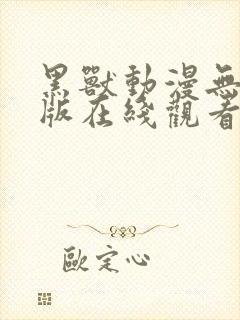 黑獸動漫無
版在綫觀看
歐定心